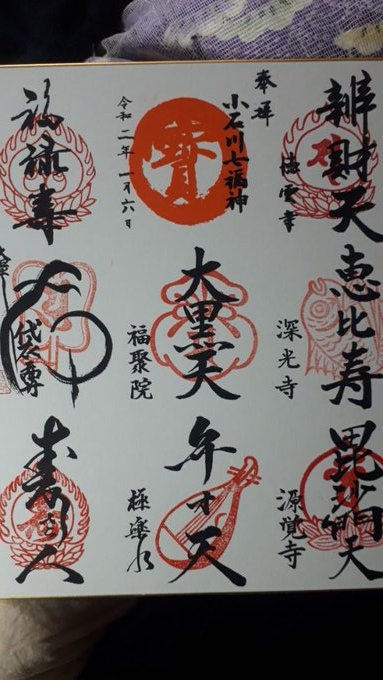 奉拝
小石川七福神
令和二年一月六日
辨財天
徳雲寺
恵比寿
深光寺
毘沙門天
源覚寺
大黒天
福聚院
弁才天
極楽水
福禄寿
袋尊
寿老人
寶